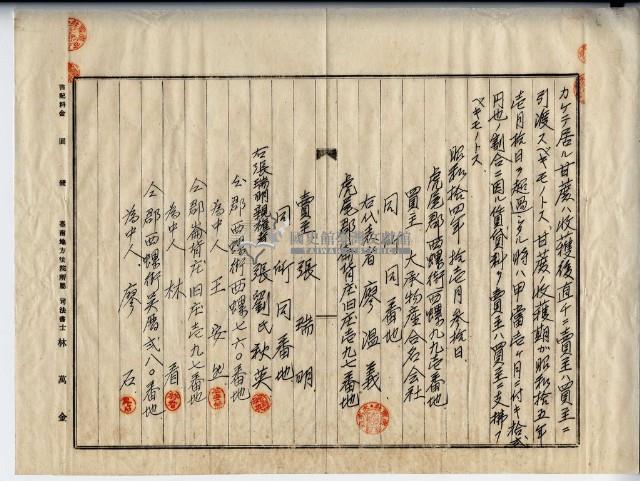 カケテ居ル甘蔗ノ收穫後直チニ賣主ハ買主ニ
引渡スベキモノトス甘蔗ノ收穫期ガ昭和拾五年
壱月拾日ヲ超過シタル時ハ甲當壱ケ月ニ付キ拾弐
円也ノ割合ニ因ル賃貸料ヲ賣主ハ買主ニ支拂フ
ベキモノトス
昭和拾四年拾壱月參拾日
虎尾郡西螺街西螺九九壱番地
買主 大承物産合名会社
同 同番地
右代表者 廖温義
虎尾郡崙背庄旧庄壱九七番地
賣主 張瑞明
同所同番地
右張瑞明親権者 張劉氏秋英
仝郡西螺街西螺七六〇番地
為中人 王安
仝郡崙背庄旧庄壱九七番地
為中人 林看
仝郡西螺街吳厝弐八〇番地
為中人 廖石
書記料金 圓 錢 臺南地方法院所屬 司法書士 林萬金
國史館臺灣文獻館
TAIWAN HISTORICA